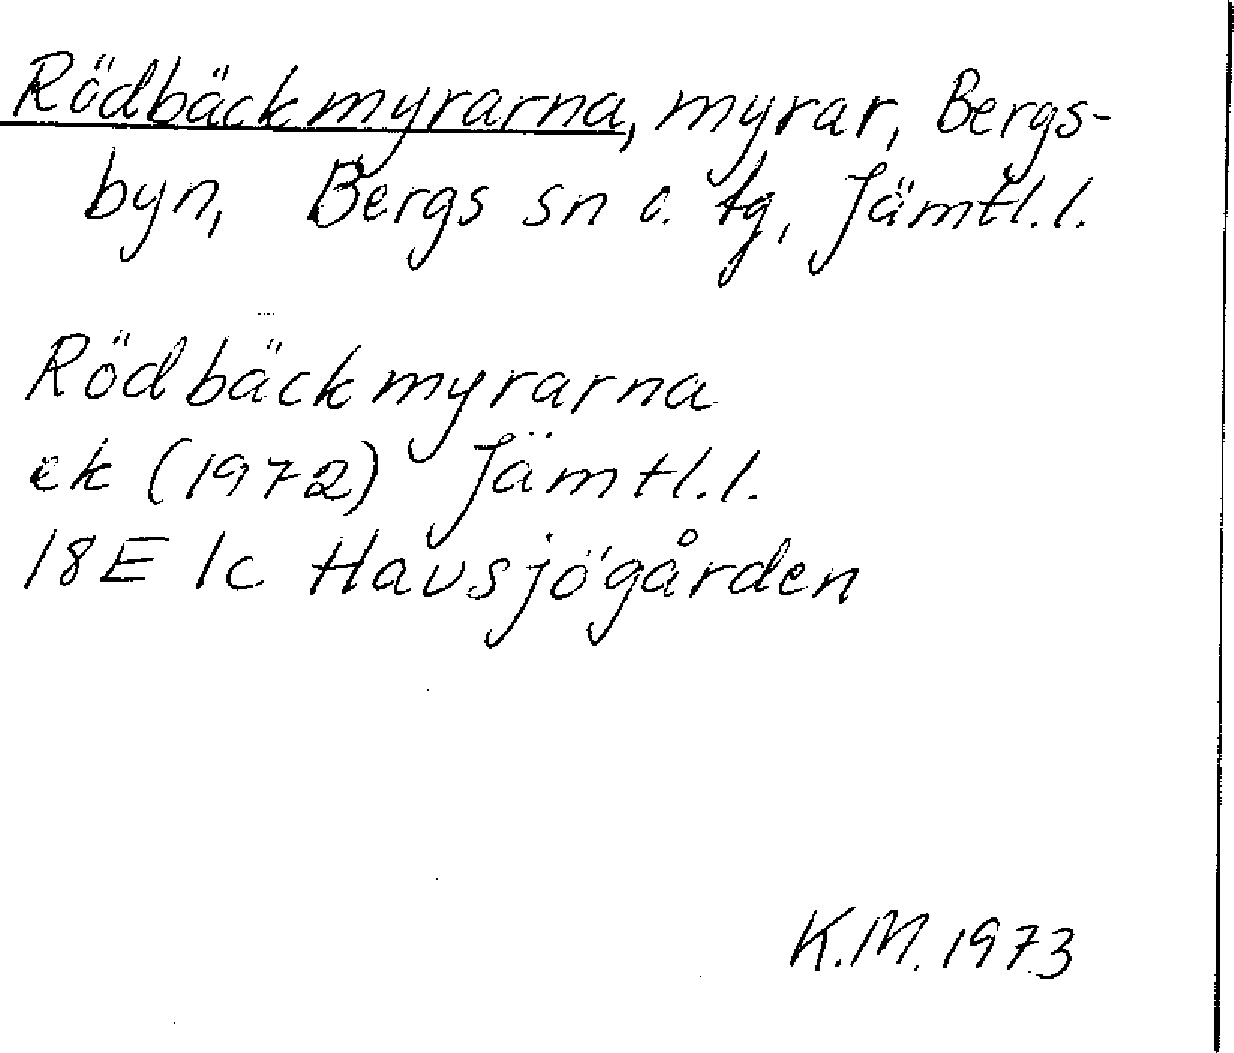 Rödbäckmyrarna, myrar, Bergs-
byn, Bergs sn o. tg, Jämtl. l.
Rödbäckmyrarna
ek (1972) Jämtl. l.
18E 1c Havsjögården
K.M. 1973